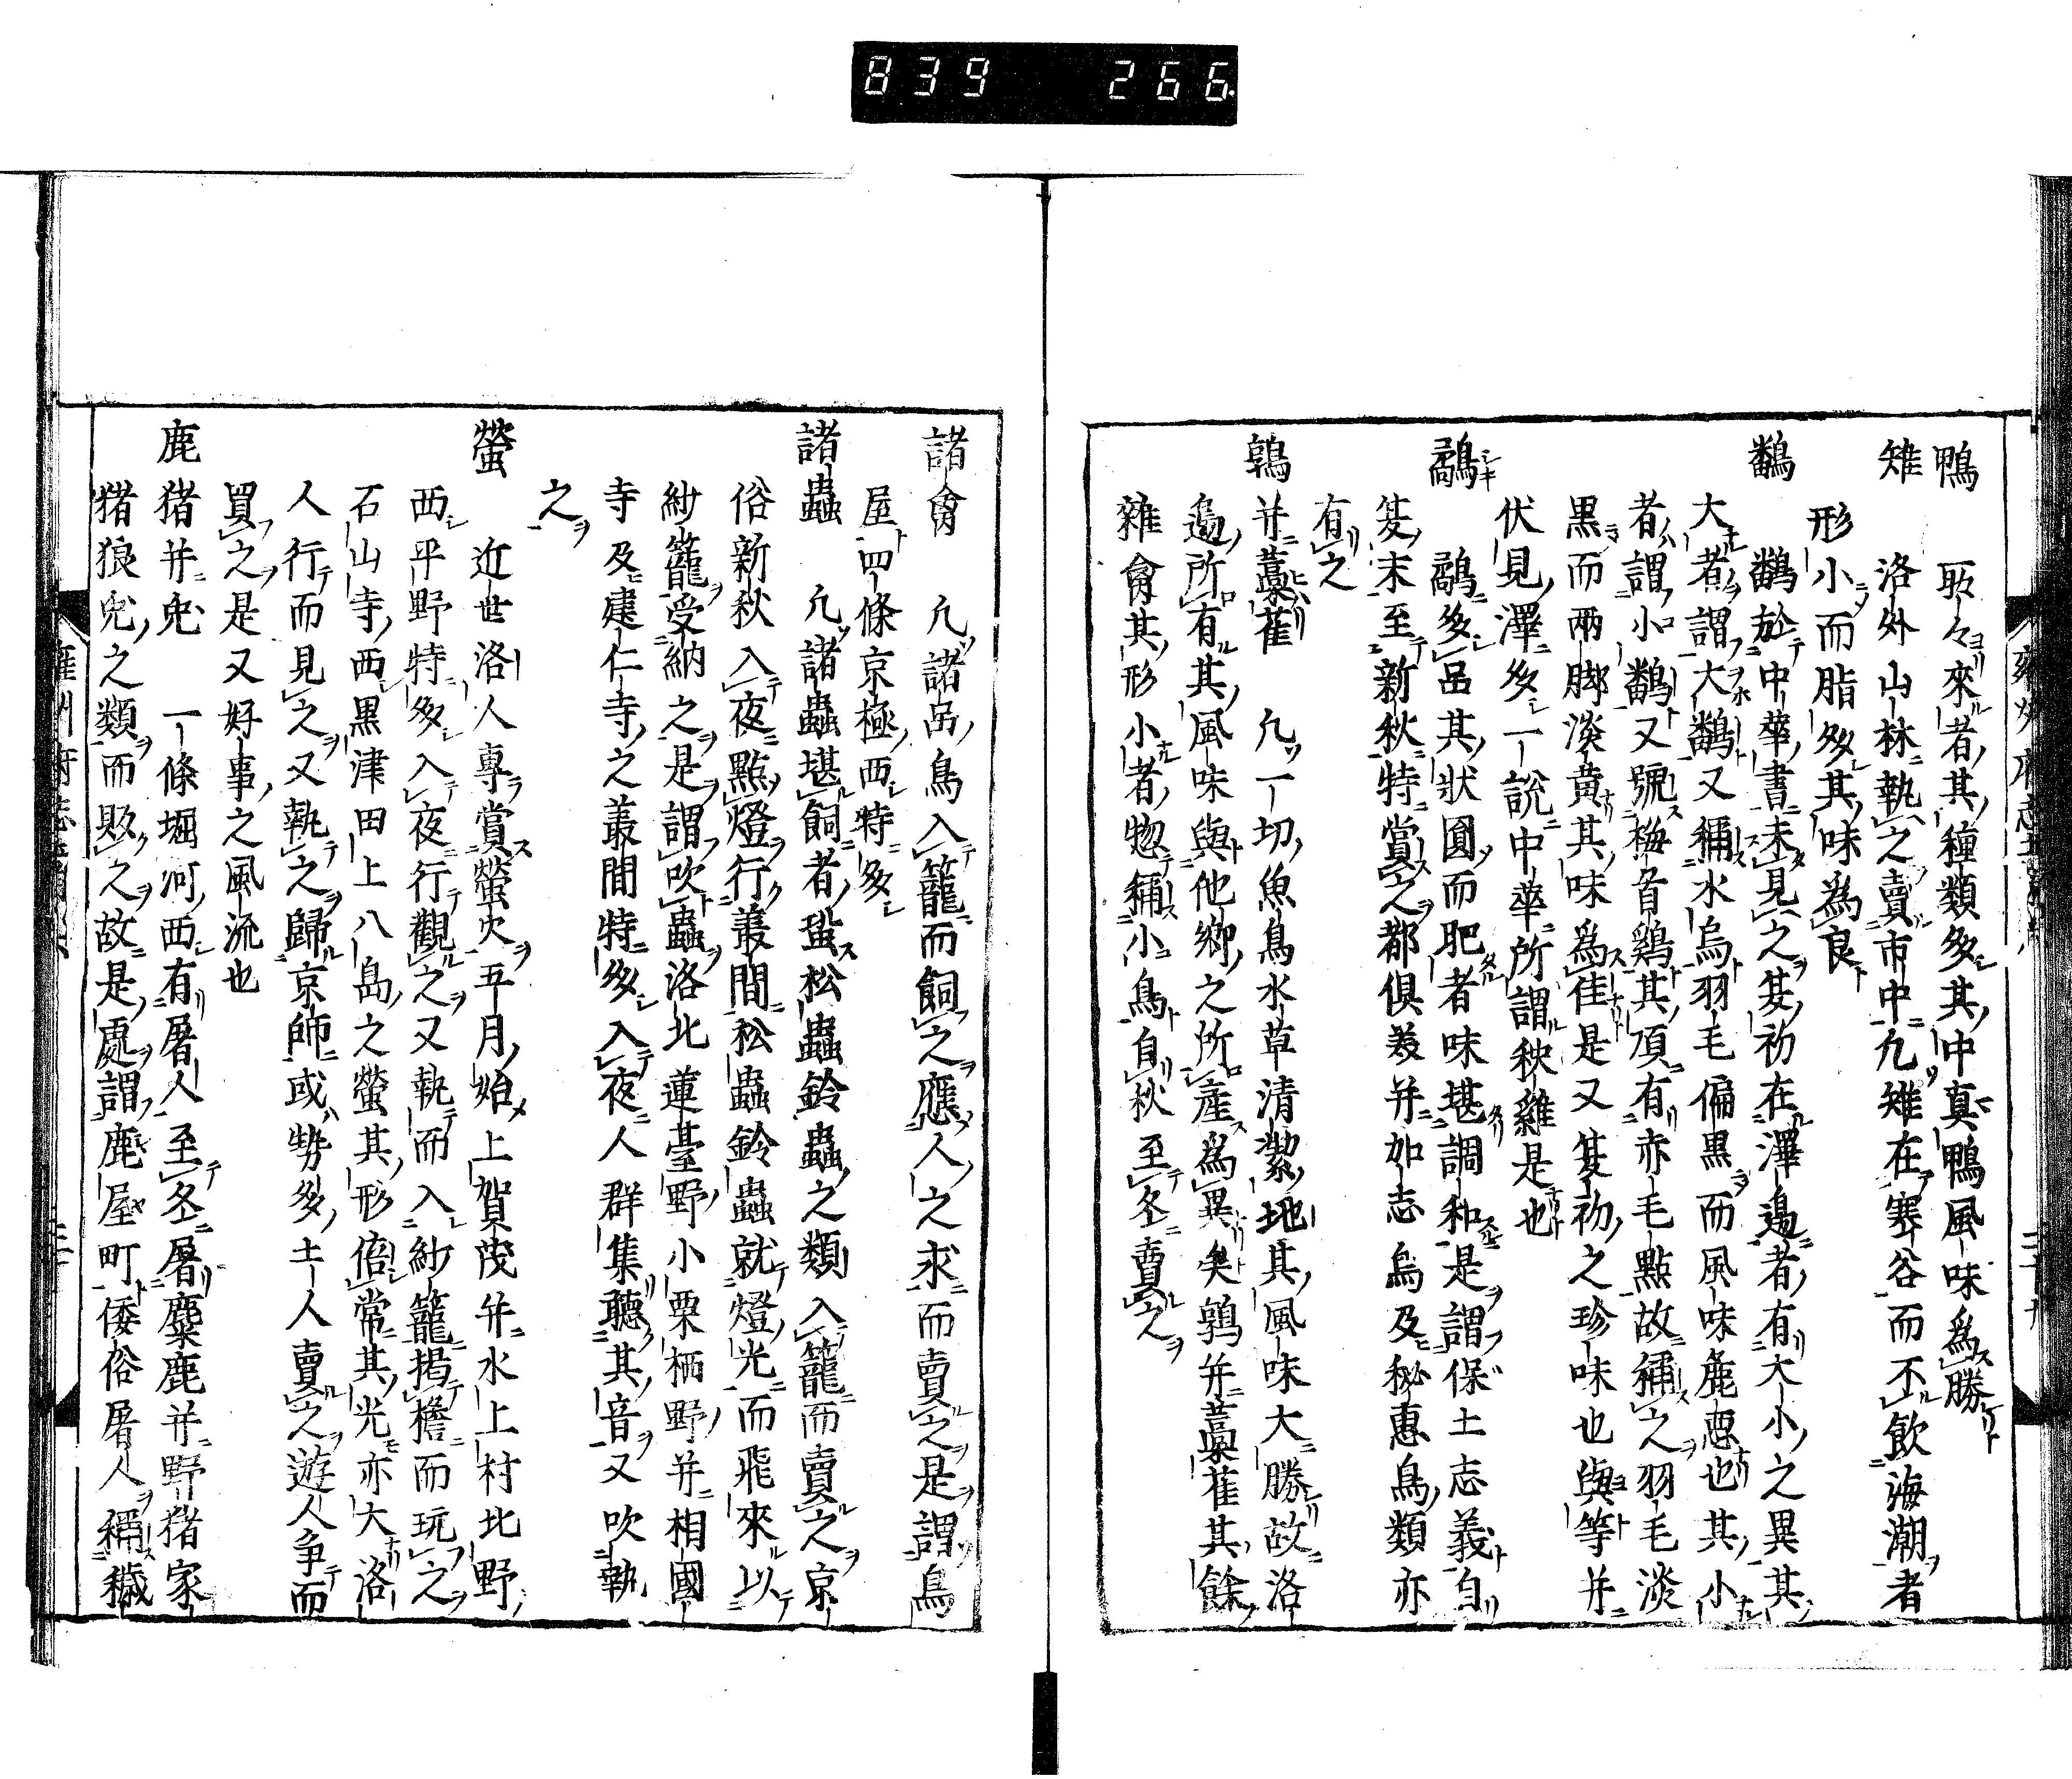 839 266
鴨 㪽々來者其種類多其中真鴨風味為勝
雉 洛外山林執之賣市中凢雉在寒谷而不飲海潮者
形小而脂多其味為良
鷭 鷭於中華書未見之夏初在澤邉者有大小之異其
大者謂大鷭又稱水烏羽毛偏黒而風味麁惡也其小
者謂小鷭又號梅首鷄其頂有赤毛點故稱之羽毛淡
黒而兩脚淡黄其味為佳是又夏初之珍味也與等并
伏見澤多一說中華所謂秧雞是也
鷸 鷸多品其狀圓而肥者味堪調和是謂保土志義自
夏末至新秋特賞之都倶羨并加志烏及秘惠鳥類亦
有之
鶉并藁雀 凢一切魚鳥水草清潔地其風味大勝故洛
邉所有其風味與他鄉之所產為異矣鶉并藁雀其餘
雜禽其形小者惣稱小鳥自秋至冬賣之
諸禽 凢諸品鳥入籠而飼之應人之求而賣之是謂鳥
屋四條京極西特多
諸蟲 凢諸蟲堪飼者蛩松蟲鈴蟲之類入籠而賣之京
俗新秋入夜點燈行叢間松蟲鈴蟲就燈光而飛來以
紗籠受納之是謂吹蟲洛北蓮臺野小栗栖野并相國
寺及建仁寺之叢間特多入夜人群集聽其音又吹執
之
螢 近世洛人專賞螢火五月始上賀茂并水上村北野
西平野特多入夜行觀之又執而入紗籠掲檐而玩之
石山寺西黒津田上八島之螢其形倍常其光亦大洛
人行而見之又執之歸京師或勢多土人賣之遊人争而
買之是又好事之風流也
鹿猪并兎 一條堀河西有屠人至冬屠麋鹿并野猪家
猪狼兎之類而販之故是處謂鹿屋町倭俗屠人稱穢